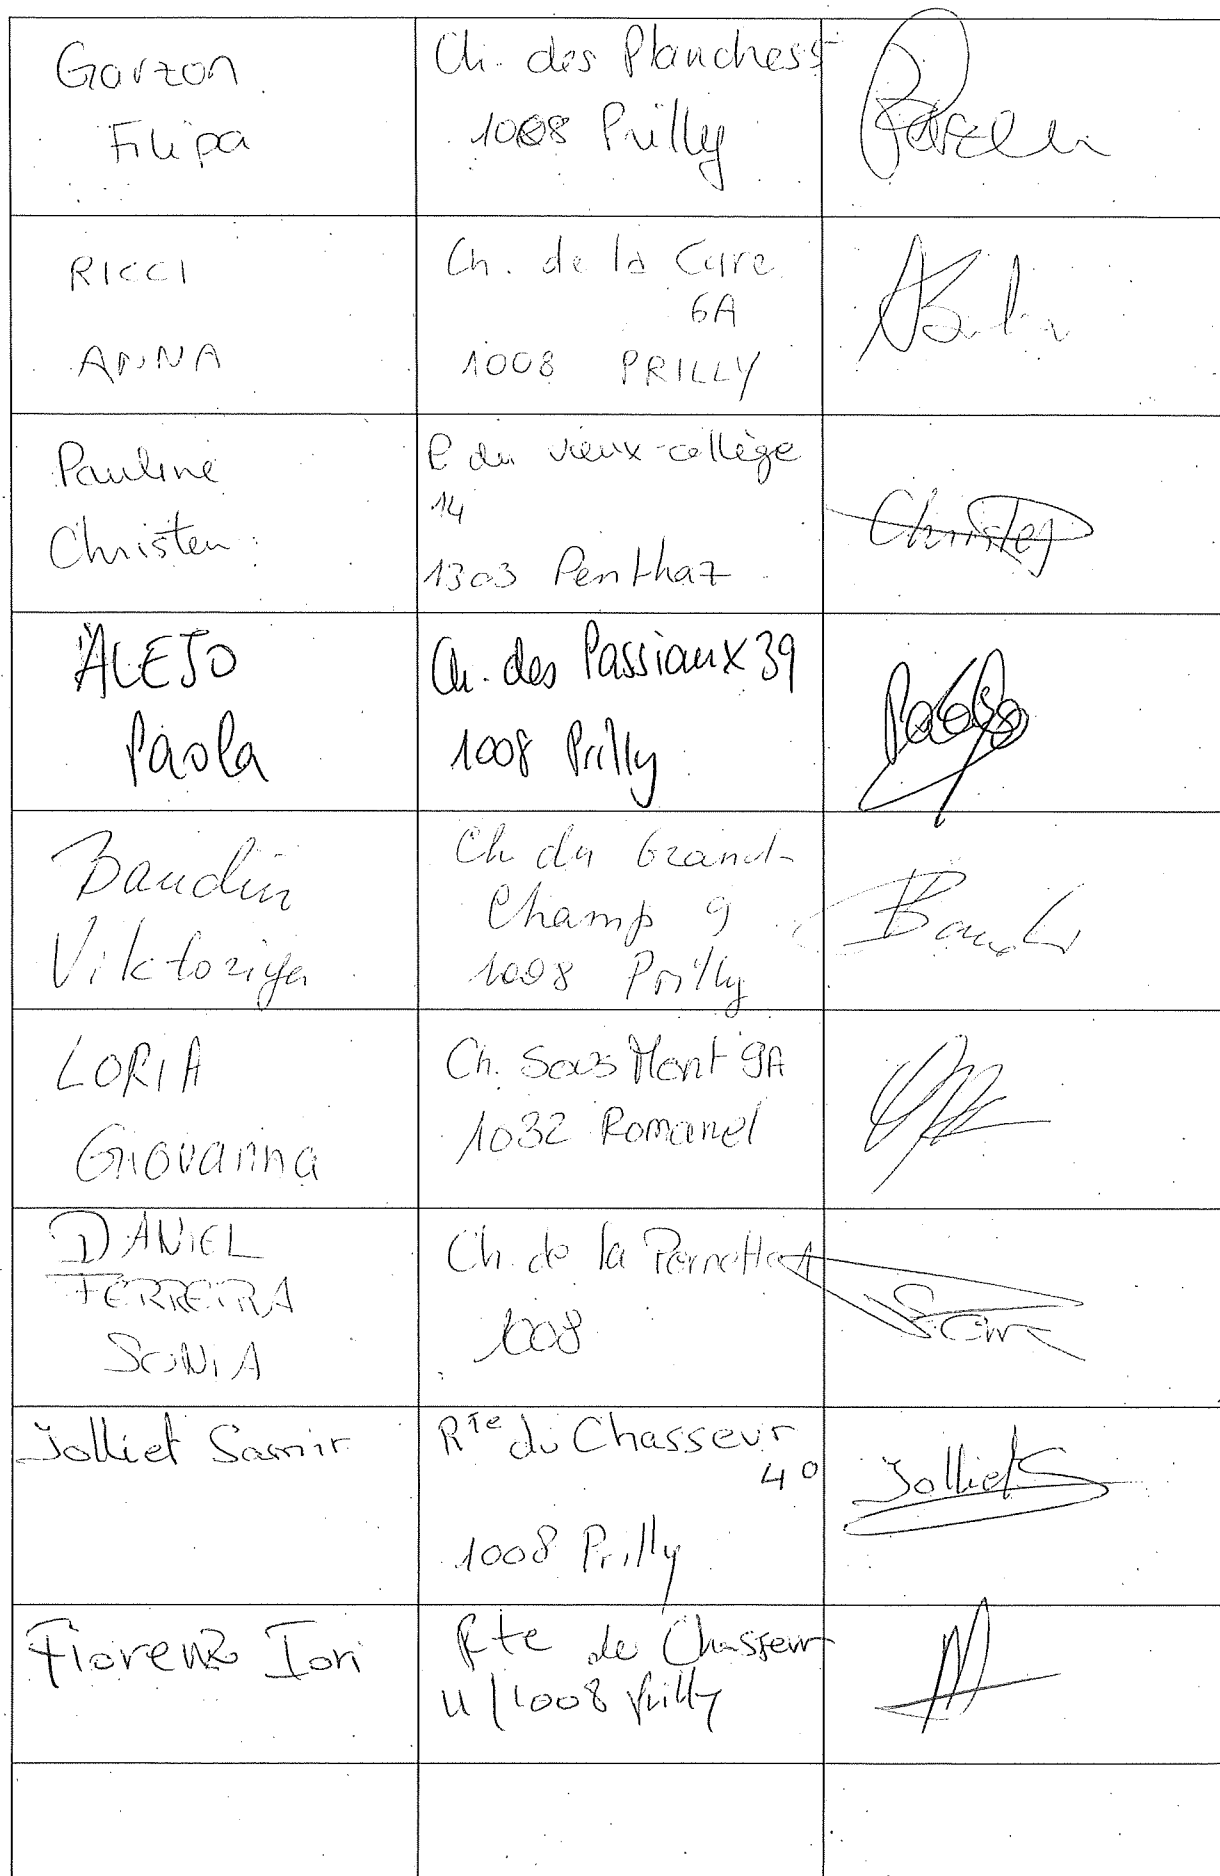 Garzon
Filipa
Ch. des Planches 5
1008 Prilly
RICCI
ANNA
Ch. de la Cure
6A
1008 PRILLY
Pauline
Christen
R du vieux-collège
14
1303 Penthaz
Christen
ALEJO
Paola
Ch. des Passiaux 39
1008 Prilly
Baudin
Viktoriya
Ch du Grand-
Champ 9
1008 Prilly
LORIA
Giovanna
Ch. Sous Mont 9A
1032 Romanel
DANIEL
FERREIRA
SONIA
Ch. de la Pernette
1008
Jolliet Samir
Rte du Chasseur
40
1008 Prilly
Jolliet S
Fiorenzo Iori
Rte de Chasseur
1008 Prilly